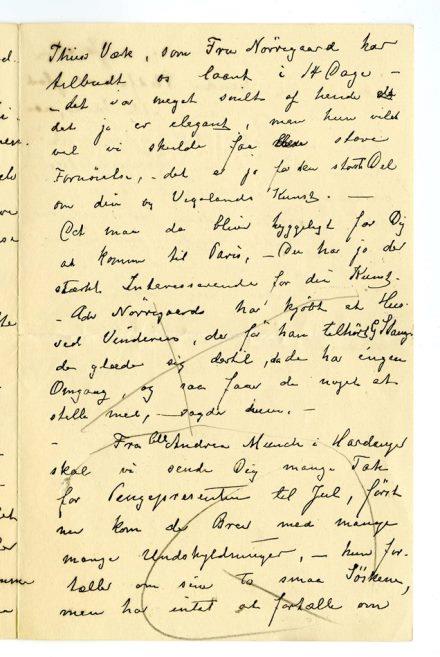 Thiis Værk, som Fru Nørregaard har
tilbudt os laant i 14 Dage –
– det var meget snilt af hende
det jo er elegant, men hun vilde
vel vi skulde faa store
Fornøielse, – det er jo for den største Del
om din og Vigelands Kunst. –
Det maa da blive hyggeligt for Dig
at komme til Paris, – Du har jo der
stærkt Interesserende for din Kunst.
– Adv Nørregaards har kjøbt et Hus
ved Vinderen, der før han tilhørt G Stang.
de glæde sig dertil, da de har ingen
Omgang, og saa faar de noget at
stelle med, – sagde hun. –
– Fra Andrea Munch i Hardanger
skal vi sende Dig mange Tak
for Pengepresenten til Jul, først
nu kom der Brev med mange
mange Undskyldninger, – hun for-
tæller om sine to smaa Søskene,
men har intet at fortælle om